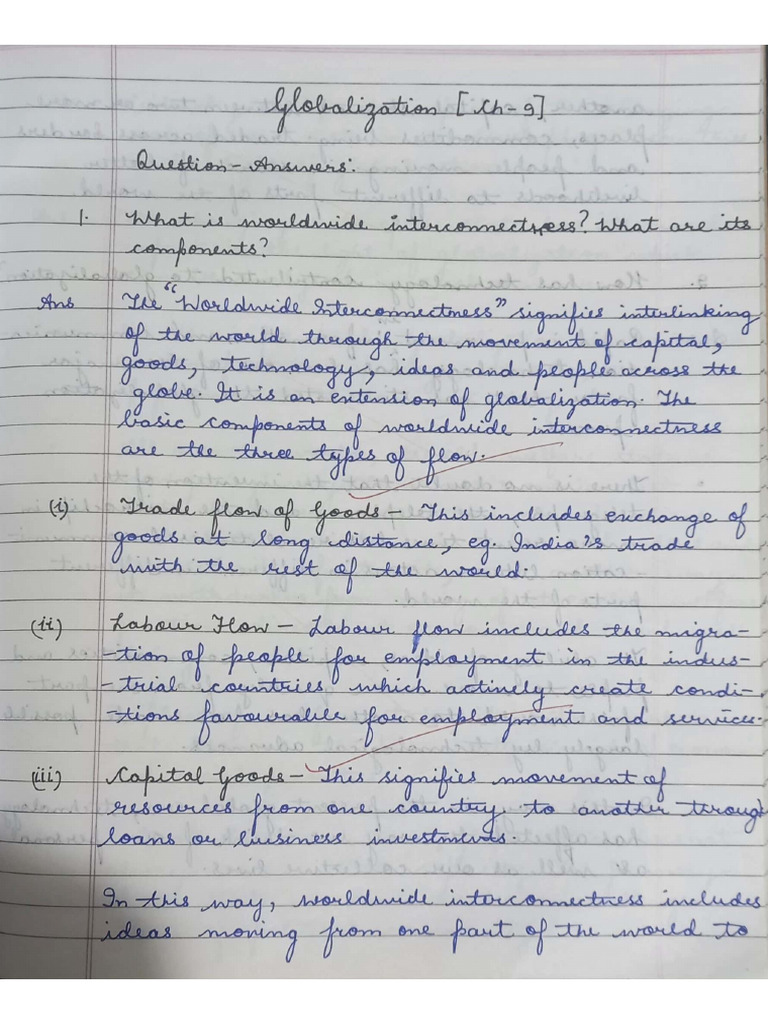 Globalization [Ch-9]
Question-Answers:
1. What is worldwide interconnectness? What are its
components?
Ans The "Worldwide Interconnectness" signifies interlinking
of the world through the movement of capital,
goods, technology, ideas and people across the
globe. It is an extension of globalization. The
basic components of worldwide interconnectness
are the three types of flow.
(i) Trade flow of Goods - This includes exchange of
goods at long distance, eg. India's trade
with the rest of the world.
(ii) Labour Flow - Labour flow includes the migra-
-tion of people for employment in the indus-
-trial countries which actively create condi-
-tions favourable for employment and services.
(iii) Capital Goods - This signifies movement of
resources from one country to another through
loans or business investments.
In this way, worldwide interconnectness includes
ideas moving from one part of the world to